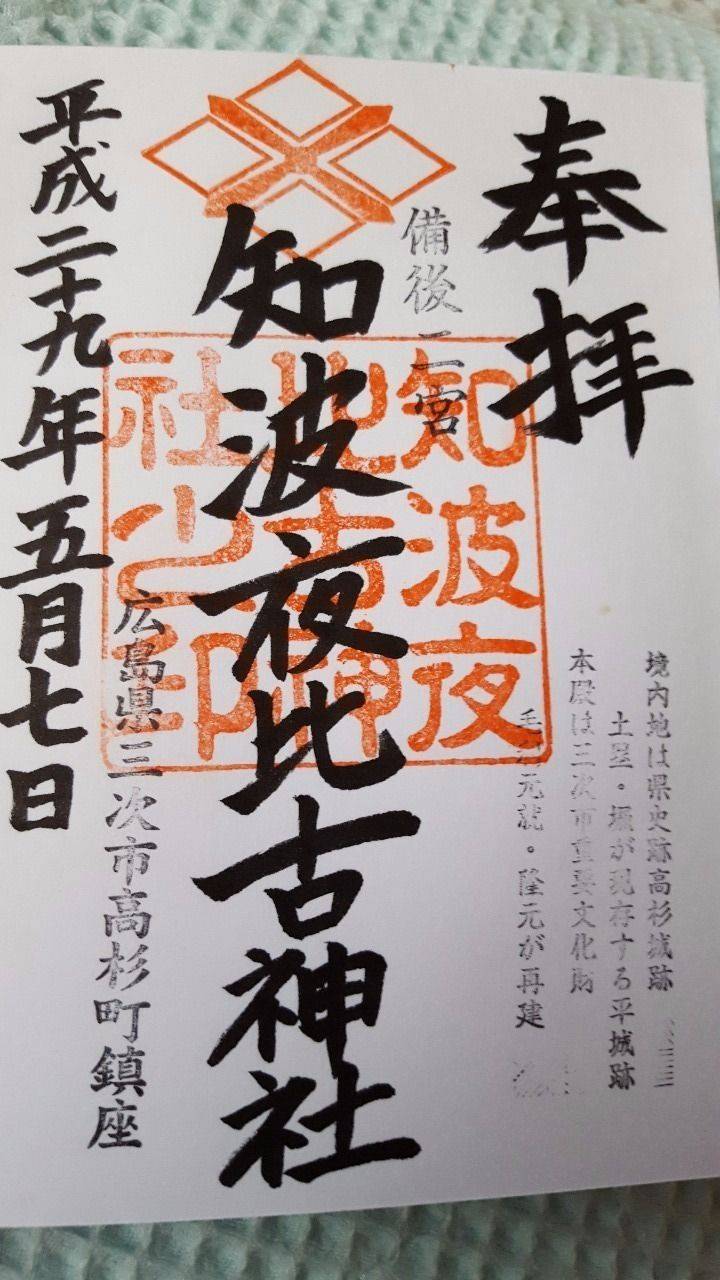 奉拝
備後二宮
知波夜比古神社
知波夜
比古神
社之印
境内地は県史跡高杉城跡
土塁・堀が現存する平城跡
本殿は三次市重要文化財
毛利元就・隆元が再建
広島県三次市高杉町鎮座
平成二十九年五月七日